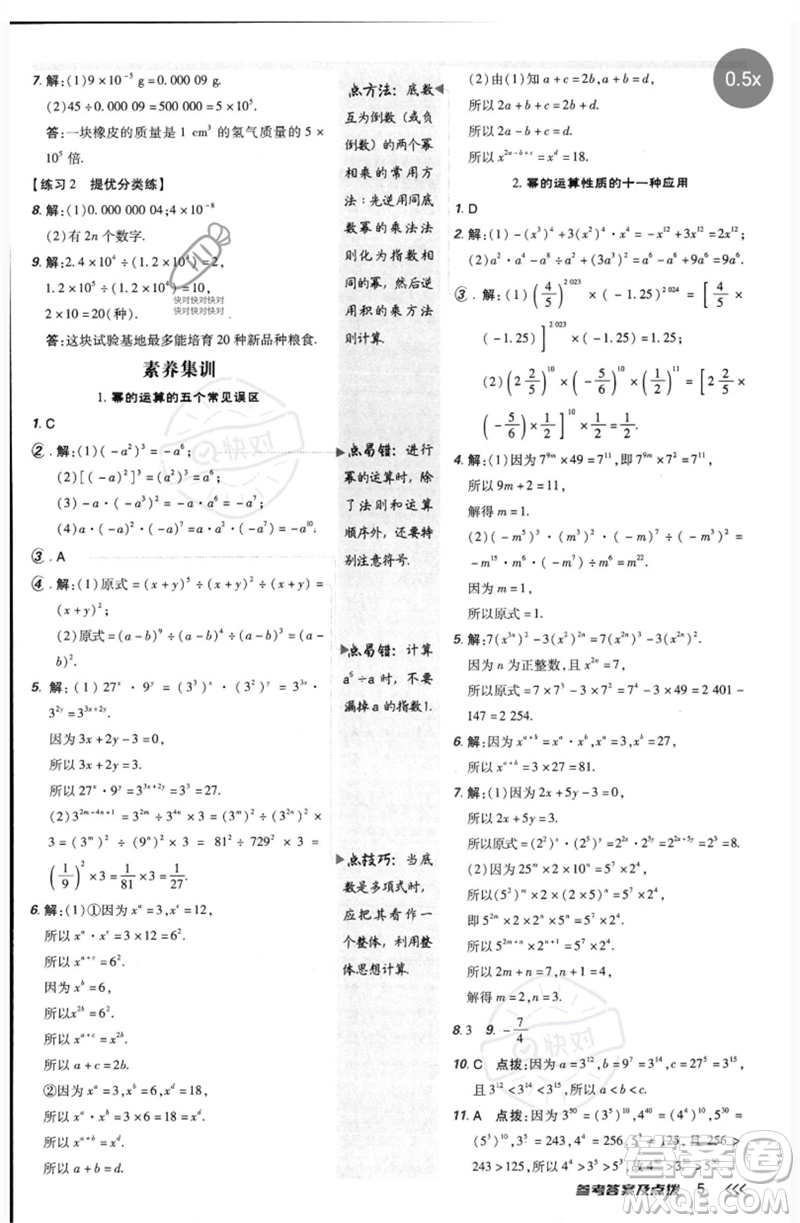 7. 解:(1)9 × 10⁻⁵ g = 0. 000 09 g.
(2)45 ÷ 0. 000 09 = 500 000 = 5 × 10⁵.
答:一块橡皮的质量是 1 cm³ 的氢气质量的 5 ×
10⁵ 倍.
【练习2 提优分类练】
8. 解:(1)0. 000 000 04;4 × 10⁻⁸
(2)有 2n 个数字.
9. 解:2. 4 × 10⁶ ÷ (1. 2 × 10⁶) = 2,
1. 2 × 10⁵ ÷ (1. 2 × 10⁴) = 10,
2 × 10 = 20(种).
答:这块试验基地最多能培育 20 种新品种粮食.
素养集训
1. 幂的运算的五个常见误区
1. C
②. 解:(1)(-a²)³ = -a⁶;
(2)[(-a)²]³ = (a²)³ = a⁶;
(3)-a · (-a)⁵ = -a · (-a⁵) = a⁶;
(4)a · (-a)² · (-a)⁷ = a · a² · (-a⁷) = -a¹⁰.
③. A
④. 解:(1)原式 = (x + y)⁵ ÷ (x + y)² ÷ (x + y) =
(x + y)²;
(2)原式 = (a - b)⁹ ÷ (a - b)⁶ ÷ (a - b) = (a -
b)².
5. 解:(1)27ˣ · 9ʸ = (3³)ˣ · (3²)ʸ = 3³ˣ · 3²ʸ =
3³ˣ⁺²ʸ.
因为 3x + 2y - 3 = 0,
所以 3x + 2y = 3,
所以 27ˣ · 9ʸ = 3³ˣ⁺²ʸ = 3³ = 27.
(2)3²ᵐ⁻⁴ⁿ⁺¹ = 3²ᵐ ÷ 3⁴ⁿ × 3 = (3ᵐ)² ÷ (3⁴ⁿ) ×
3 = (3ᵐ)² ÷ (9ⁿ)² × 3 = 81² ÷ 729² × 3 =
(1/9)² × 3 = 1/81 × 3 = 1/27.
6. 解:(1)①因为 xᵃ = 3,xᶜ = 12,
所以 xᵃ · xᶜ = 3 × 12 = 6².
所以 xᵃ⁺ᶜ = 6².
因为 xᵇ = 6,
所以 x²ᵇ = 6².
所以 xᵃ⁺ᶜ = x²ᵇ.
所以 a + c = 2b.
②因为 xᵃ = 3,xᵇ = 6,xᵈ = 18,
所以 xᵃ · xᵇ = 3 × 6 = 18 = xᵈ.
所以 xᵃ⁺ᵇ = xᵈ.
所以 a + b = d.
点方法:底数
互为倒数(或负
倒数)的两个幂
相乘的常用方
法:先逆用同底
数幂的乘法法
则化为指数相
同的幂,再逆
用积的乘方法
则计算.
点易错:进行
幂的运算时,除
了法则和运算
顺序外,还要特
别注意符号.
点易错:计算
a⁶ ÷ a 时,不要
漏掉 a 的指数1.
点技巧:当底
数是多项式时,
应把其看作一
个整体,利用整
体思想计算.
(2)由(1)知 a + c = 2b,a + b = d,
所以 2a + b + c = 2b + d,
所以 2a - b + c = d,
所以 x²ᵃ⁻ᵇ⁺ᶜ = xᵈ = 18.
2. 幂的运算性质的十一种应用
1. D
2. 解:(1)-(x³)⁴ + 3(x²)⁴ · x⁴ = -x¹² + 3x¹² = 2x¹²;
(2)a² · a⁴ - a⁸ ÷ a² + (3a³)² = a⁶ - a⁶ + 9a⁶ = 9a⁶.
③. 解:(1)(4/5)² ⁰²³ × (-1. 25)² ⁰²⁴ = [4/5 ×
(-1. 25)]² ⁰²³ × (-1. 25) = 1. 25;
(2)(2 5/6)¹⁰ × (-5/6)¹⁰ × (1/2)¹¹ = [2 5/6 ×
(-5/6) × 1/2]¹⁰ × 1/2 = 1/2.
4. 解:(1)因为 7⁹ᵐ × 49 = 7¹¹,即 7⁹ᵐ × 7² = 7¹¹,
所以 9m + 2 = 11,
解得 m = 1.
(2)(-m⁵)³ · (m³)² · (-m²)³ ÷ (-m)¹² =
-m¹⁵ · m⁶ · (-m⁶) ÷ m¹² = m¹⁵.
因为 m = 1,
所以原式 = 1.
5. 解:7(x³ⁿ)² - 3(x²)²ⁿ = 7(x²ⁿ)³ - 3(x²ⁿ)².
因为 n 为正整数,且 x²ⁿ = 7,
所以原式 = 7 × 7³ - 3 × 7² = 7⁴ - 3 × 49 = 2 401 -
147 = 2 254.
6. 解:因为 xᵃ⁺ᵇ = xᵃ · xᵇ,xᵃ = 3,xᵇ = 27,
所以 xᵃ⁺ᵇ = 3 × 27 = 81.
7. 解:(1)因为 2x + 5y - 3 = 0,
所以 2x + 5y = 3.
所以原式 = (2²)ˣ · (2⁵)ʸ = 2²ˣ · 2⁵ʸ = 2²ˣ⁺⁵ʸ = 2³ = 8.
(2)因为 25ᵐ × 2 × 10ⁿ = 5⁷ × 2⁴,
所以 (5²)ᵐ × 2 × (2 × 5)ⁿ = 5⁷ × 2⁴,
即 5²ᵐ × 2 × 2ⁿ × 5ⁿ = 5⁷ × 2⁴,
所以 5²ᵐ⁺ⁿ × 2ⁿ⁺¹ = 5⁷ × 2⁴.
所以 2m + n = 7,n + 1 = 4,
解得 m = 2,n = 3.
8. 3 9. -7/4
10. C 点拨:因为 a = 3¹²,b = 9⁷ = 3¹⁴,c = 3¹⁵,
且 3¹² < 3¹⁴ < 3¹⁵,所以 a < b < c.
11. A 点拨:因为 3⁵⁰ = (3⁵)¹⁰,4⁴⁰ = (4⁴)¹⁰,5³⁰ =
(5³)¹⁰,3⁵ = 243,4⁴ = 256,5³ = 125,且 256 >
243 > 125,所以 4⁴⁰ > 3⁵⁰ > 5³⁰.
参考答案及点拨 5
0.5x
快对快对快对
快对快对快对
快对
快对
答案圈